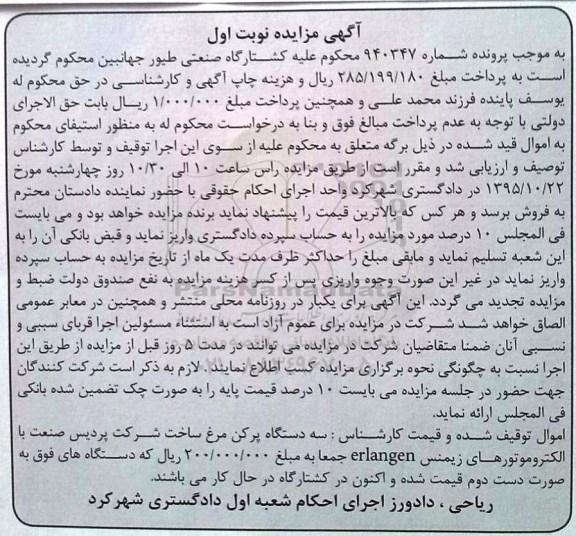 آگهی مزایده نوبت اول
به موجب پرونده شماره ۹۴۰۳۴۷ محکوم علیه کشتارگاه صنعتی طیور جهانبین محکوم گردیده
است به پرداخت مبلغ ۲۸۵/۱۹۹/۱۸۰ ریال و هزینه چاپ آگهی و کارشناسی در حق محکوم له
یوسف پاینده فرزند محمد علی و همچنین پرداخت مبلغ ۱/۰۰۰/۰۰۰ ریال بابت حق الاجرای
دولتی با توجه به عدم پرداخت مبالغ فوق و بنا به درخواست محکوم له به منظور استیفای محکوم
به اموال قید شده در ذیل برگه متعلق به محکوم علیه از سوی این اجرا توقیف و توسط کارشناس
توصیف و ارزیابی شد و مقرر است از طریق مزایده راس ساعت ۱۰ الی ۱۰/۳۰ روز چهارشنبه مورخ
۱۳۹۵/۱۰/۲۲ در دادگستری شهرکرد واحد اجرای احکام حقوقی با حضور نماینده دادستان محترم
به فروش برسد و هر کس که بالاترین قیمت را پیشنهاد نماید برنده مزایده خواهد بود و می بایست
فی المجلس ۱۰ درصد مورد مزایده را به حساب سپرده دادگستری واریز نماید و قبض بانکی آن را به
این شعبه تسلیم نماید و مابقی مبلغ را حداکثر ظرف مدت یک ماه از تاریخ مزایده به حساب سپرده
واریز نماید در غیر این صورت وجوه واریزی پس از کسر هزینه مزایده به نفع صندوق دولت ضبط و
مزایده تجدید می گردد. این آگهی برای یکبار در روزنامه محلی منتشر و همچنین در معابر عمومی
الصاق خواهد شد شرکت در مزایده برای عموم آزاد است به استثناء مسئولین اجرا قربای سببی و
نسبی آنان ضمنا متقاضیان شرکت در مزایده می توانند در مدت ۵ روز قبل از مزایده از طریق این
اجرا نسبت به چگونگی نحوه برگزاری مزایده کسب اطلاع نمایند. لازم به ذکر است شرکت کنندگان
جهت حضور در جلسه مزایده می بایست ۱۰ درصد قیمت پایه را به صورت چک تضمین شده بانکی
فی المجلس ارائه نماید.
اموال توقیف شده و قیمت کارشناس : سه دستگاه پرکن مرغ ساخت شرکت پردیس صنعت با
الکتروموتورهای زیمنس erlangen جمعا به مبلغ ۲۰۰/۰۰۰/۰۰۰ ریال که دستگاه های فوق به
صورت دست دوم قیمت شده و اکنون در کشتارگاه در حال کار می باشند.
ریاحی ، دادورز اجرای احکام شعبه اول دادگستری شهرکرد